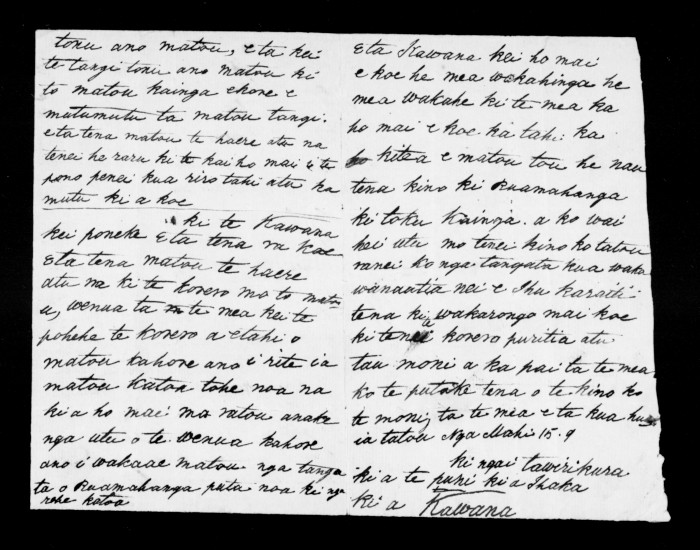 tonu ano matou, e ta kei
te tangi tonu ano matou ki
to matou kainga ekore e
mutumutu ta matou tangi.
eta tena matou te haere atu na
tenei he raru ki te kai ho mai i te
pono penei kua riro tahi atu ka
mutu ki a koe
ki te Kawana
kei poneke Eta tena ra koe
Eta tena matou te haere
atu na ki te korero mo to matou
u, wenua ta te mea kei te
pohehe te korero a etahi o
matou kahore ano i rite ia
matou katoa tohe noa na
kia ho mai ma ratou anake
nga utu o te wenua kahore
ano i wakaae matou nga tanga
ta o Ruamahanga puta noa ki nga
rohe katoa
Eta Kawana kei ho mai
e koe he mea wakahinga he
mea wakahe ki te mea ka
ho mai e koe. ka tahi ka
kitea e matou tou he nau
tena kino ki Ruamahanga
kei toku Kainga. a ko wai
hei utu mo tenei kino ko tatou
ranei ko nga tangata kua waka
wanautia nei e Ihu karaiti
tena kia wakarongo mai koe
ki tenei korero puritia atu
tau moni a ka pai ta te mea.
ko te putake tena o te kino ko
te moni, ta te mea e ta kua
ia tatou Nga Mahi 15. 9
ki ngai tawirikura
ki a te puni ki a Ihaka
ki a Kawana